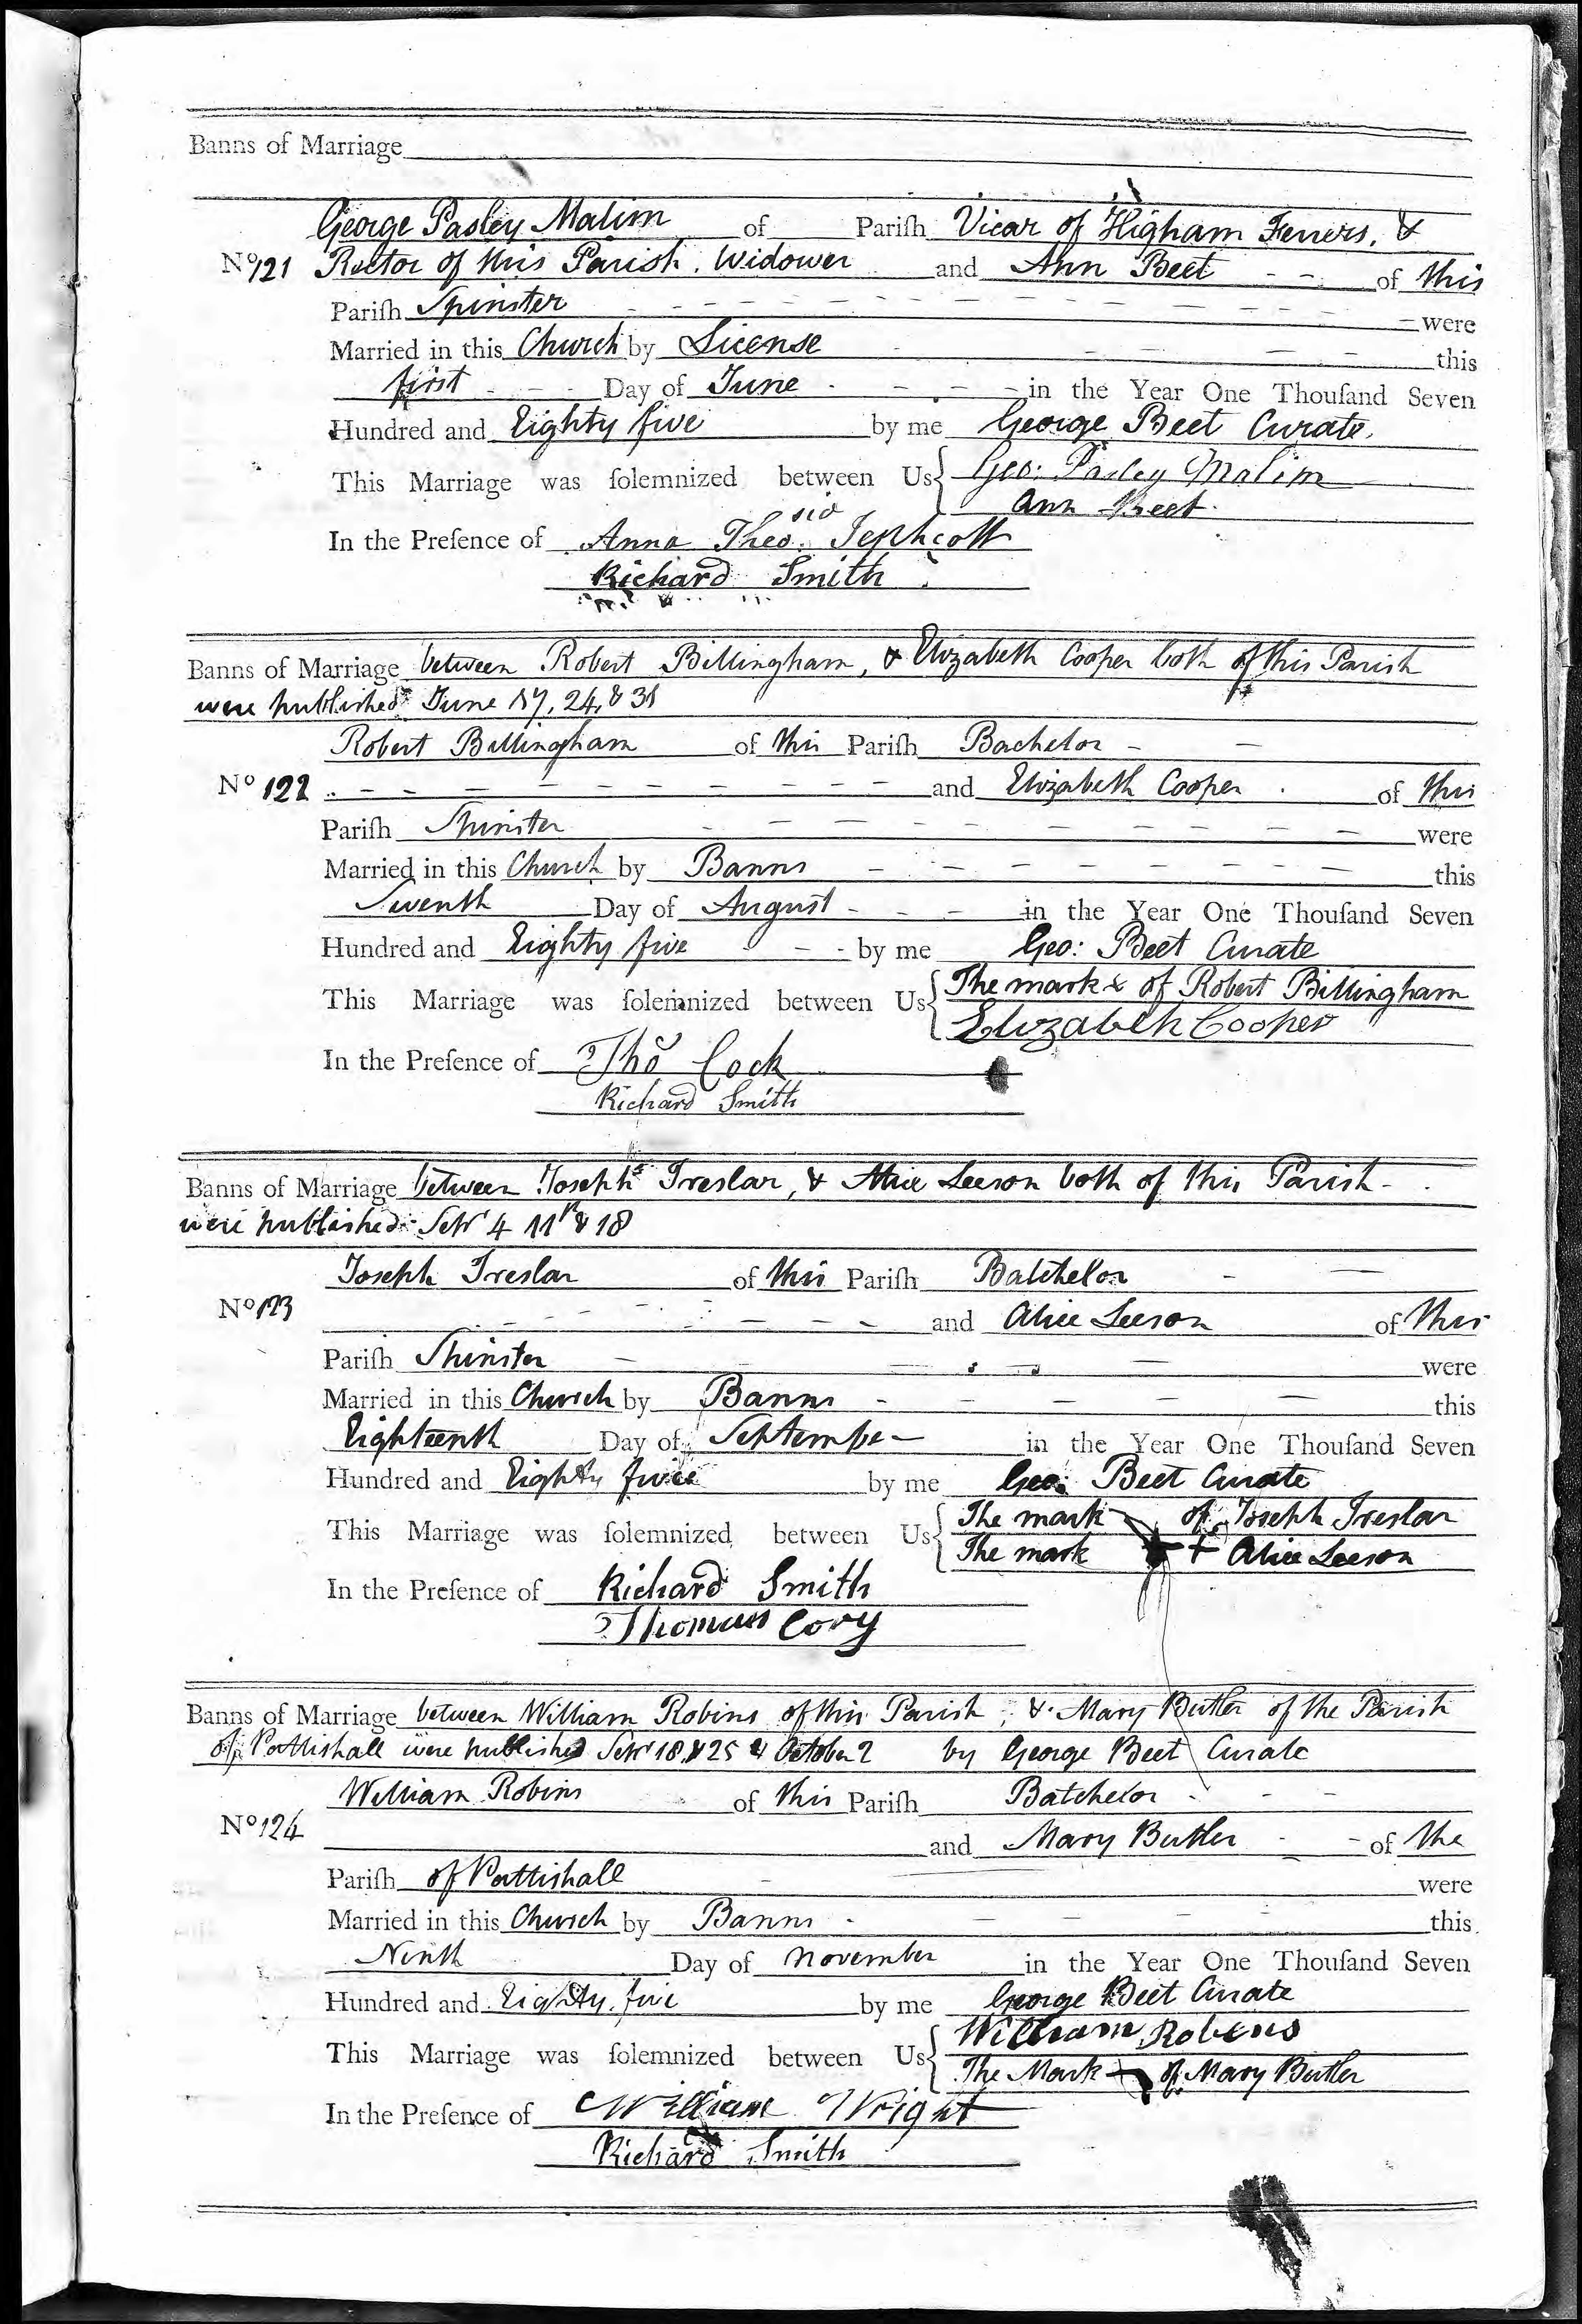 Banns of Marriage
George Pasley Malim of Pariſh Vicar of Higham Ferrers, &
No 121 Rector of this Parish. Widower and Ann Beet of this
Pariſh Spinster were
Married in this Church by License this
first Day of June in the Year One Thouſand Seven
Hundred and Eighty five by me George Beet Curate.
This Marriage was ſolemnized between Us Geo: Pasley Malim
Ann Beet
In the Preſence of Anna Theo:sia Jephcott
Richard Smith
Banns of Marriage between Robert Billingham, & Elizabeth Cooper both of this Parish
were published June 17, 24, & 31
Robert Billingham of this Pariſh Bachelor
No 122 and Elizabeth Cooper of this
Pariſh Spinster were
Married in this Church by Banns this
Seventh Day of August in the Year One Thouſand Seven
Hundred and Eighty five by me Geo: Beet Curate
This Marriage was ſolemnized between Us The mark x of Robert Billingham
Elizabeth Cooper
In the Preſence of Tho Cock
Richard Smith
Banns of Marriage between Joseph Treslar, & Alice Leeson both of this Parish
were published Sepr 4 11 & 18
Joseph Treslar of this Pariſh Batchelor
No 123 and Alice Leeson of this
Pariſh Spinster were
Married in this Church by Banns this
Eighteenth Day of September in the Year One Thouſand Seven
Hundred and Eighty five by me Geo: Beet Curate
This Marriage was ſolemnized between Us The mark of Joseph Treslar
The mark + Alice Leeson
In the Preſence of Richard Smith
Thomas Cory
Banns of Marriage between William Robins of this Parish, & Mary Butler of the Parish
of Pattishall were published Sepr 18, & 25 & October 2 by George Beet Curate
William Robins of this Pariſh Batchelor
No 124 and Mary Butler of the
Pariſh of Pattishall were
Married in this Church by Banns this
Ninth Day of November in the Year One Thouſand Seven
Hundred and Eighty five by me George Beet Curate
This Marriage was ſolemnized between Us William Robens
The Mark + of Mary Butler
In the Preſence of William Wright
Richard Smith